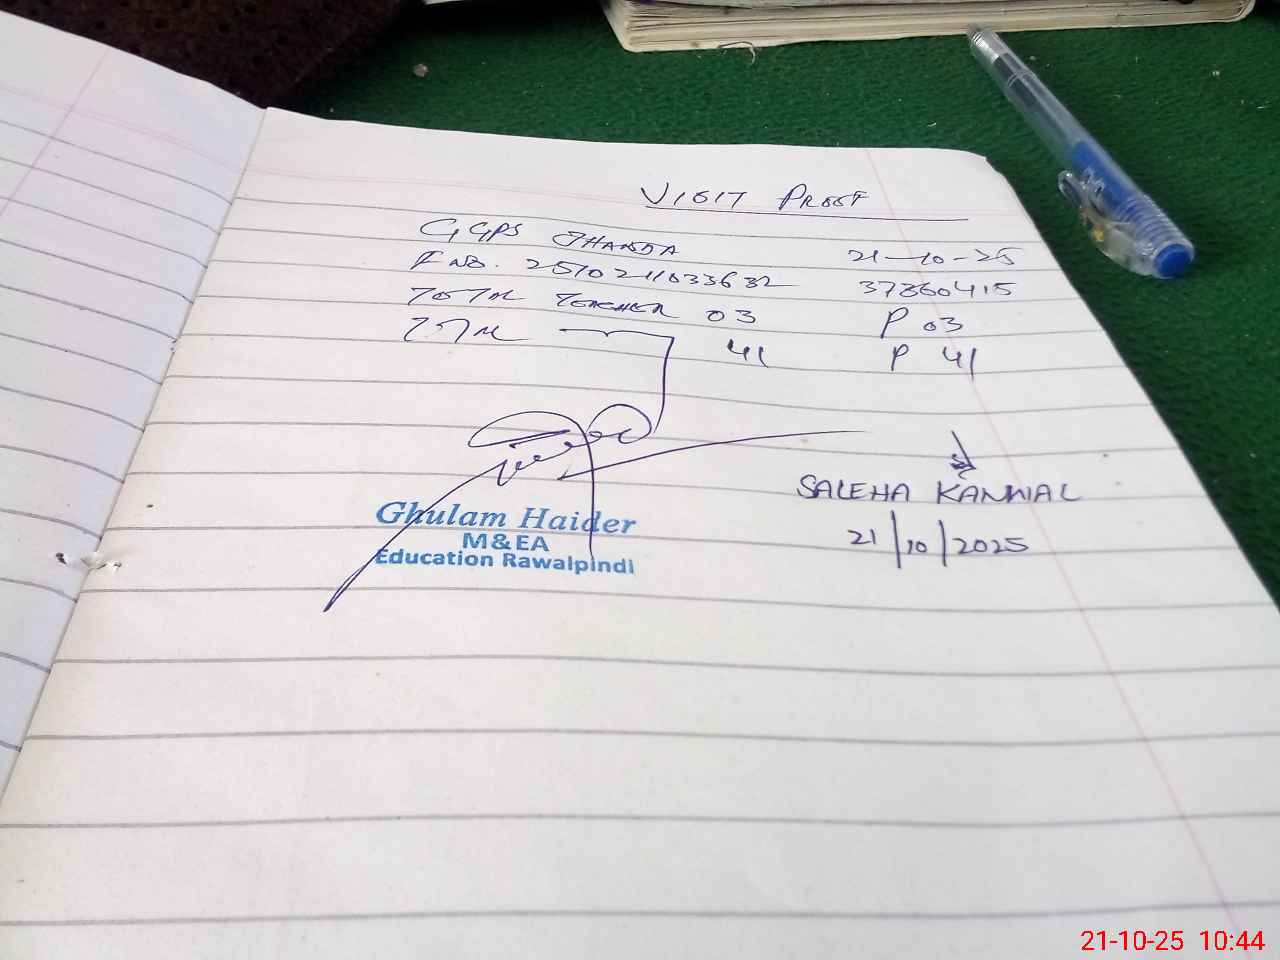 VISIT PROOF
GGPS JHANDA 21-10-25
F NO. 25102111033632 37360415
TOTAL TEACHER 03 P 03
TOTAL 41 P 41
SALEHA KANWAL
21/10/2025
Ghulam Haider
M&EA
Education Rawalpindi
21-10-25 10:44